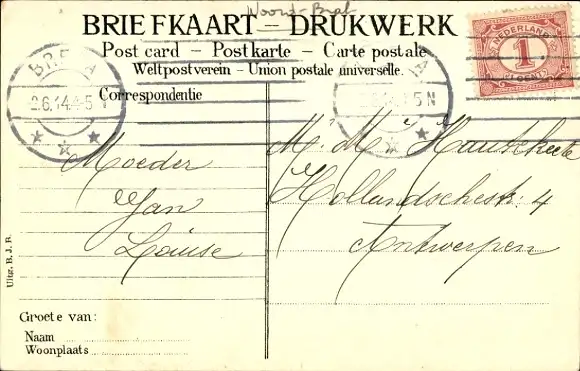 Noord-Brab
BRIEFKAART — DRUKWERK
Post card — Postkarte — Carte postale
Weltpostverein — Union postale universelle.
NEDERLAND
1
CENT
BREDA
2.6.14.4-5N
5N
Correspondentie
Moeder
Jan
Louise
Hollandschestr: 4
Antwerpen
Uitg. B. J. B.
Groete van:
Naam
Woonplaats